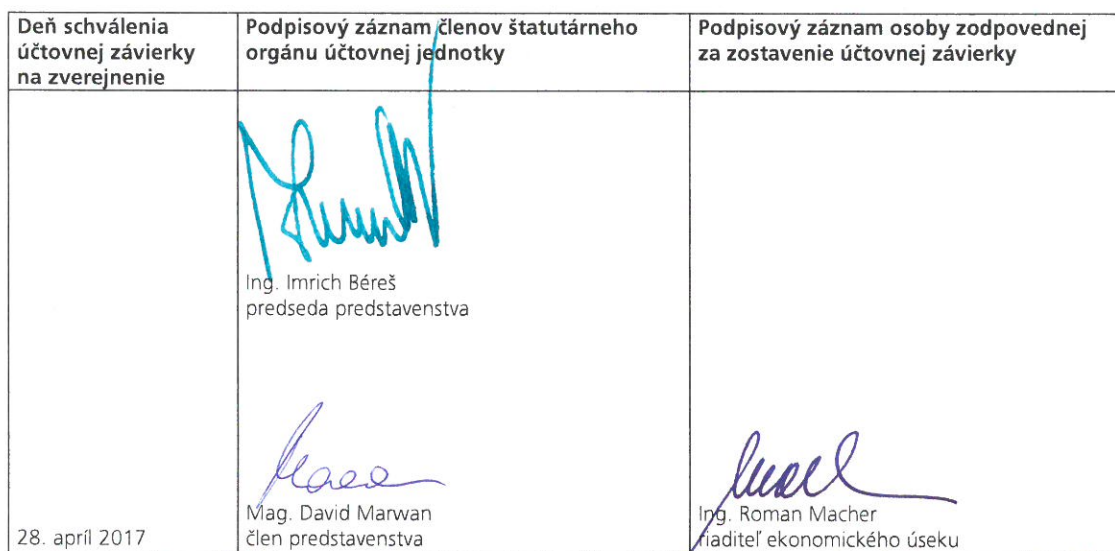 Deň schválenia
účtovnej závierky
na zverejnenie
Podpisový záznam členov štatutárneho
orgánu účtovnej jednotky
Podpisový záznam osoby zodpovednej
za zostavenie účtovnej závierky
Ing. Imrich Béreš
predseda predstavenstva
28. apríl 2017
Mag. David Marwan
člen predstavenstva
Ing. Roman Macher
riaditeľ ekonomického úseku